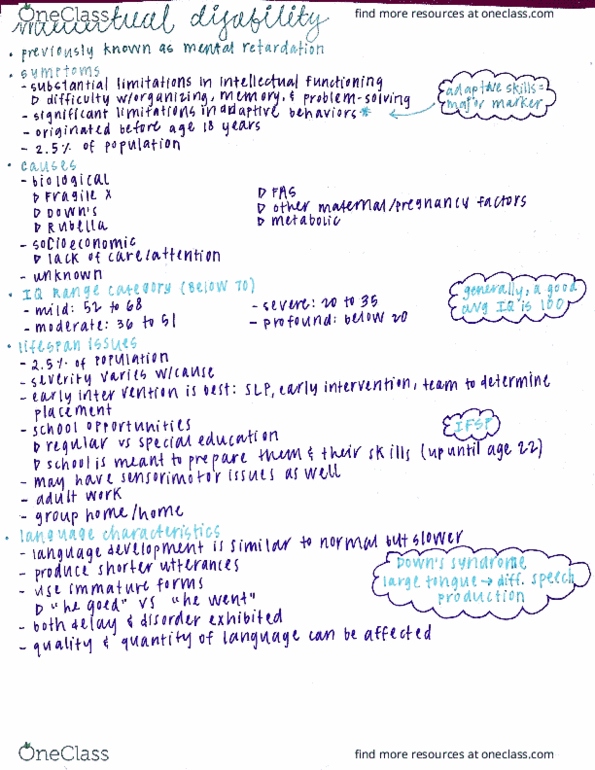 OneClass
find more resources at oneclass.com
intellectual disability
• previously known as mental retardation
• symptoms
- substantial limitations in intellectual functioning
▷ difficulty w/organizing, memory, & problem-solving
- significant limitations in adaptive behaviors*
adaptive skills =
major marker
- originated before age 18 years
- 2.5% of population
• causes
- biological
▷ Fragile X
▷ Down's
▷ Rubella
▷ FAS
▷ other maternal/pregnancy factors
▷ metabolic
- socioeconomic
▷ lack of care/attention
- unknown
• IQ Range category (below 70)
- mild: 52 to 68
- moderate: 36 to 51
- severe: 20 to 35
- profound: below 20
generally, a good
avg IQ is 100
• lifespan issues
- 2.5% of population
- severity varies w/cause
- early intervention is best: SLP, early intervention, team to determine
placement
- school opportunities
▷ regular vs special education
▷ school is meant to prepare them & their skills (up until age 22)
IFSP
- may have sensorimotor issues as well
- adult work
- group home/home
• language characteristics
- language development is similar to normal but slower
- produce shorter utterances
- use immature forms
▷ "he goed" vs "he went"
- both delay & disorder exhibited
- quality & quantity of language can be affected
Down's syndrome
large tongue → diff. speech
production
OneClass
find more resources at oneclass.com